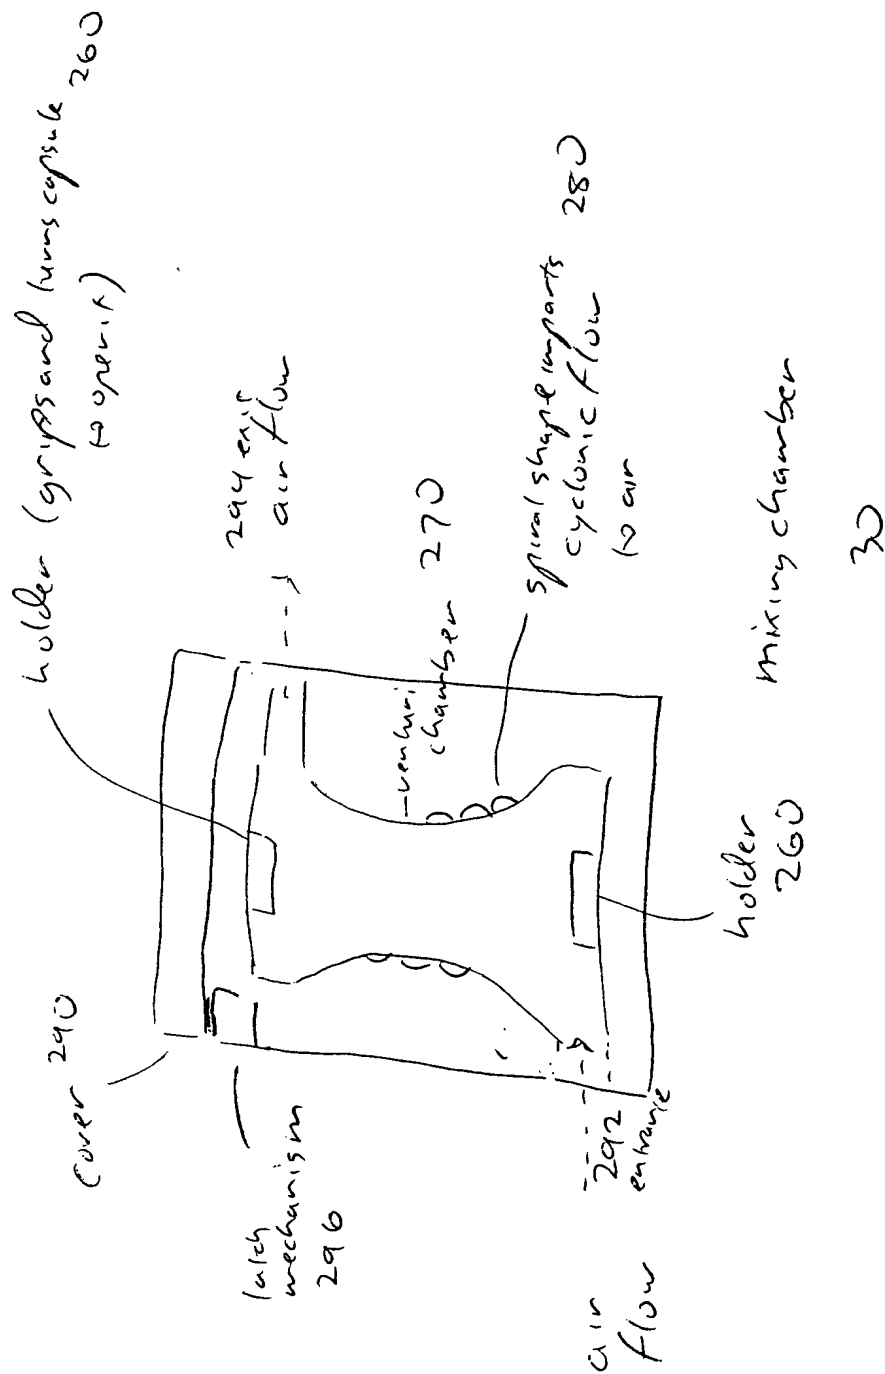 holder (grips and turns capsule 260
to open it)
294 exit
air flow
venturi
chamber 270
spiral shape imparts 280
cyclonic flow
to air
mixing chamber
30
holder
260
cover 290
latch
mechanism
296
292
entrance
air
flow